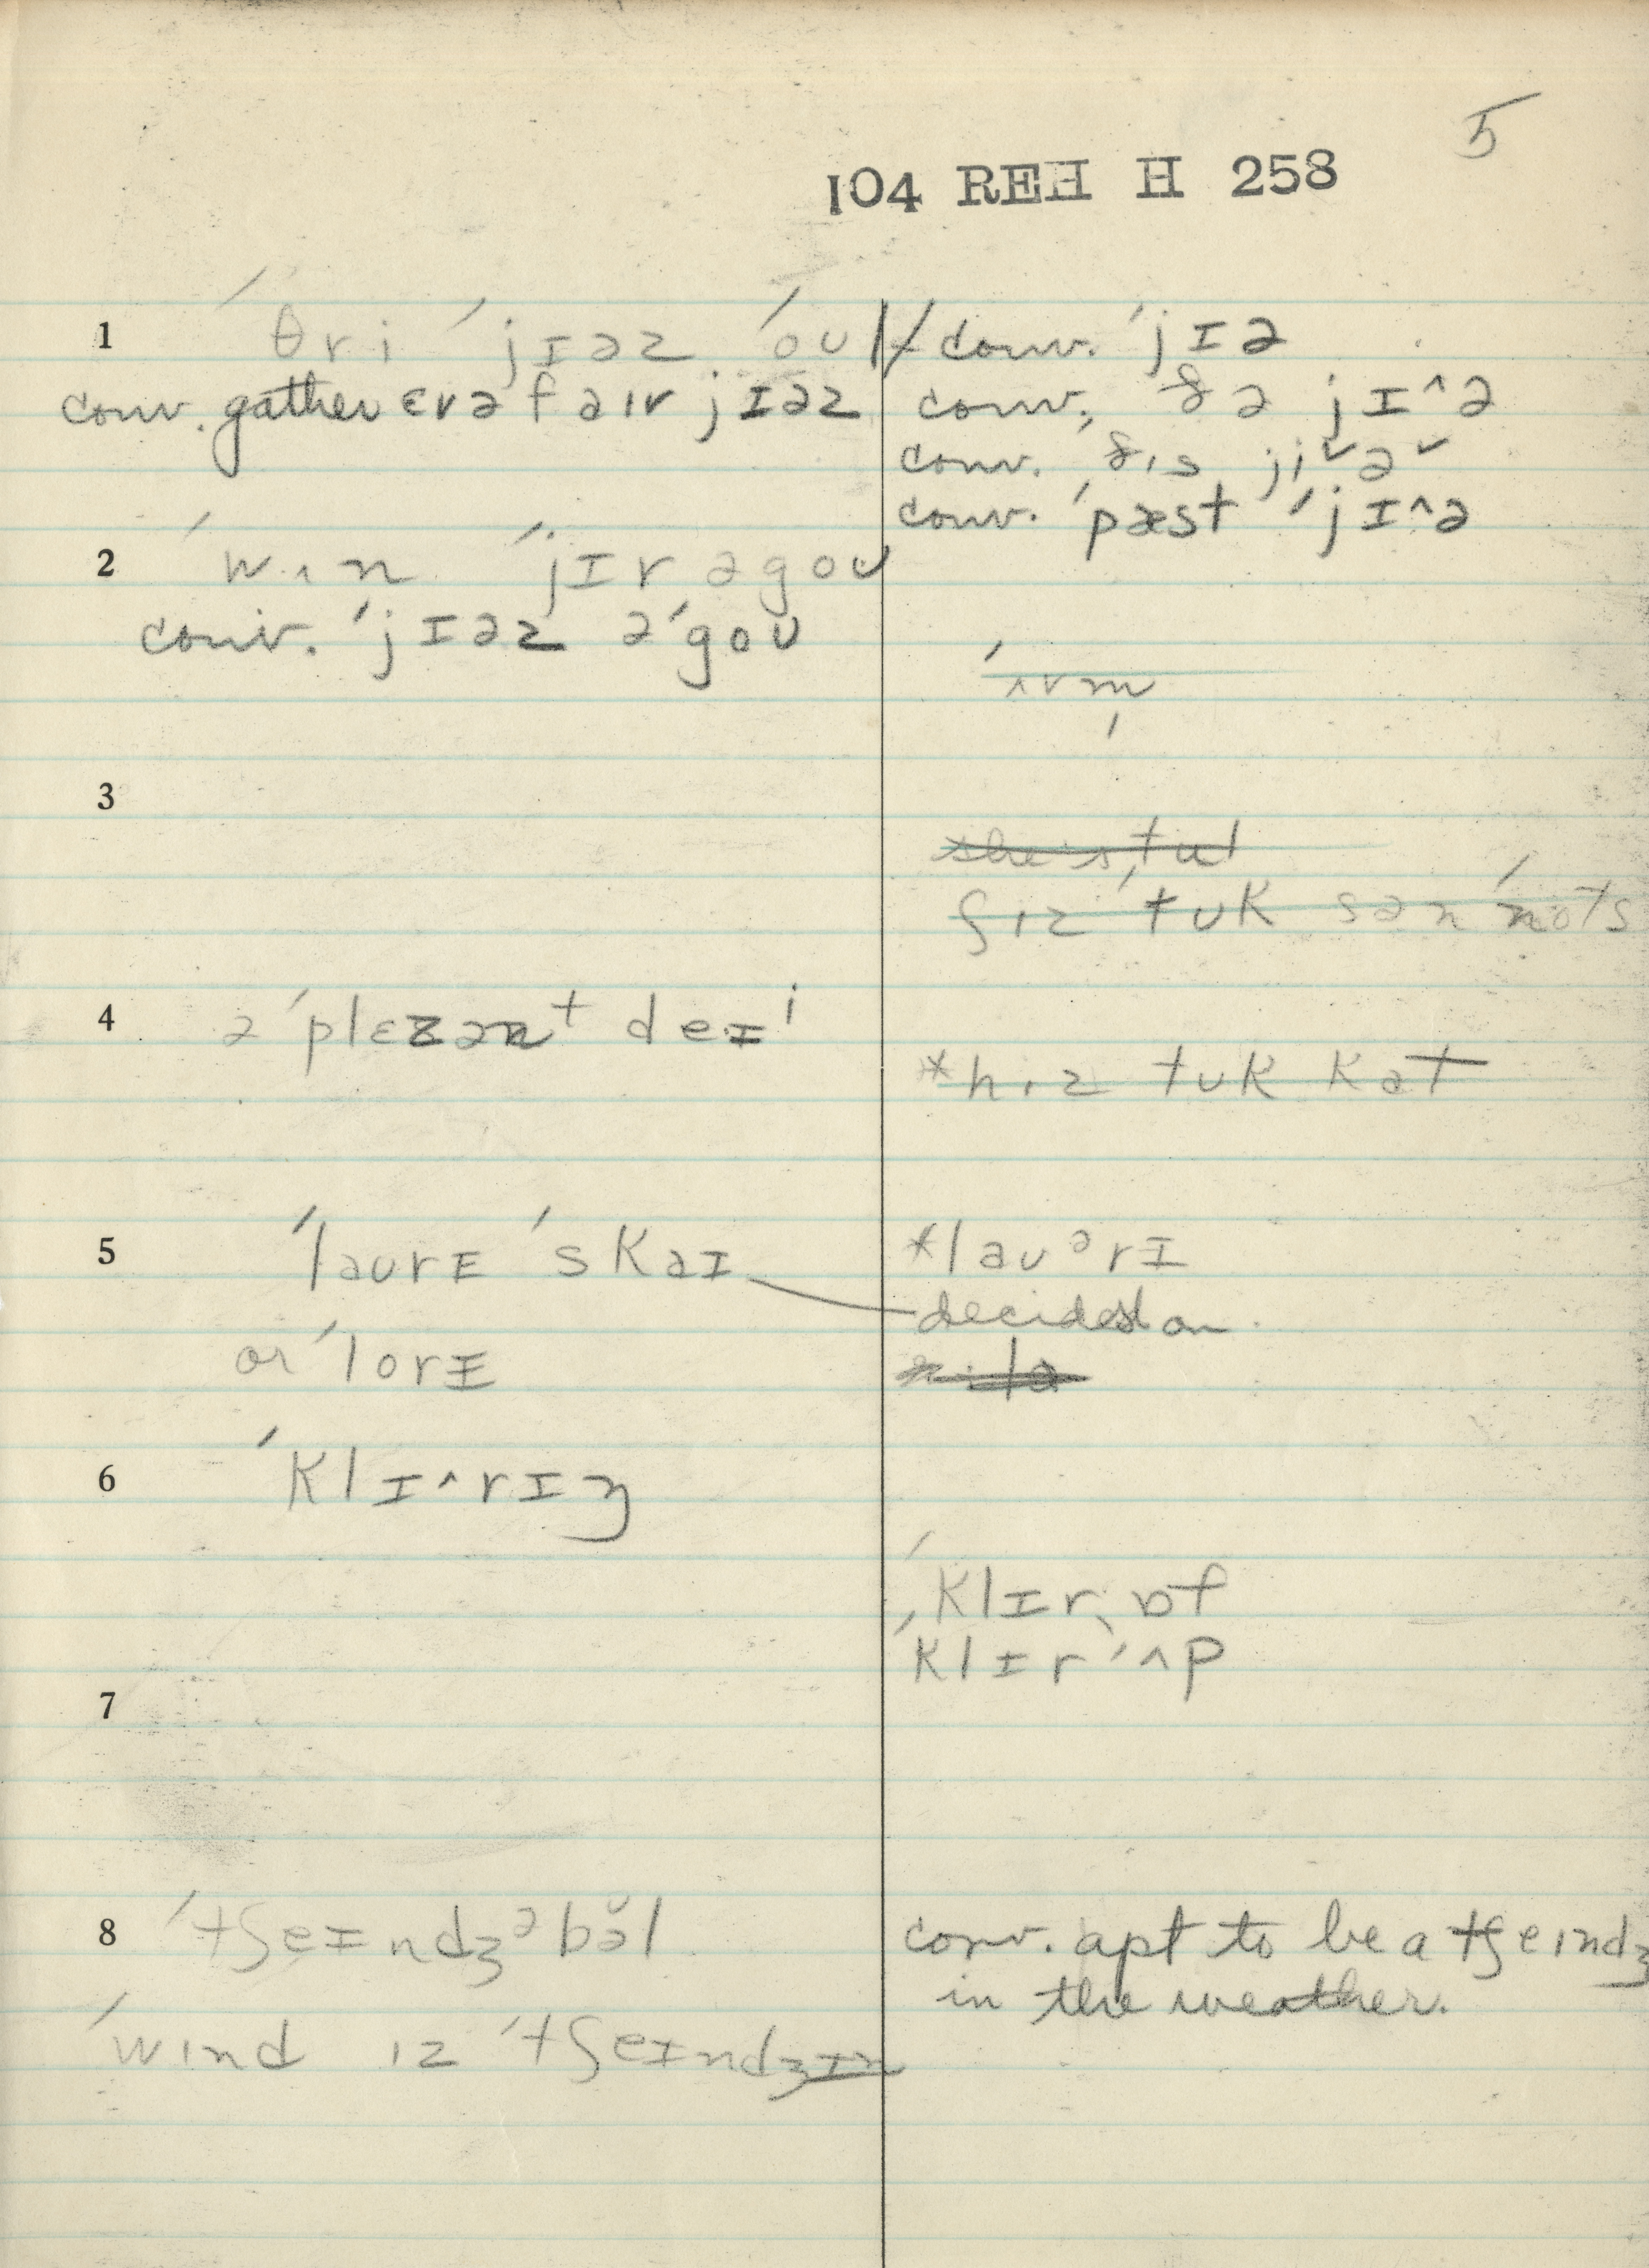 5
104 REH H 258
1 ´θri ´jɪəz ´oʊl
conv. gather ɛvə faɪv jɪəz
2 ´wʌn ´jɪr əgoʊ
conv. ´jɪəz ə´goʊ
3
4 ə ´plɛzənt deɪⁱ
5 ´laʊrɪ ´skaɪ
or ´lorɪ
6 ´klɪ^rɪŋ
7
8 ´tʃeɪndʒᵊbə̆l
´wɪnd ɪz ´tʃeɪndʒɪn
conv. ´jɪə
conv. ðə jɪ^ə
conv. ðɪs ji˅ə˅
conv. ´pæst ´jɪ^ə
ʃɪz ´tʊk sən ´nots
*hɪz tʊk kət
*laʊᵊrɪ
decided on
´klɪr ˎɒf
´klɪr ´ʌp
conv. apt to be a tʃeɪndʒ
in the weather.